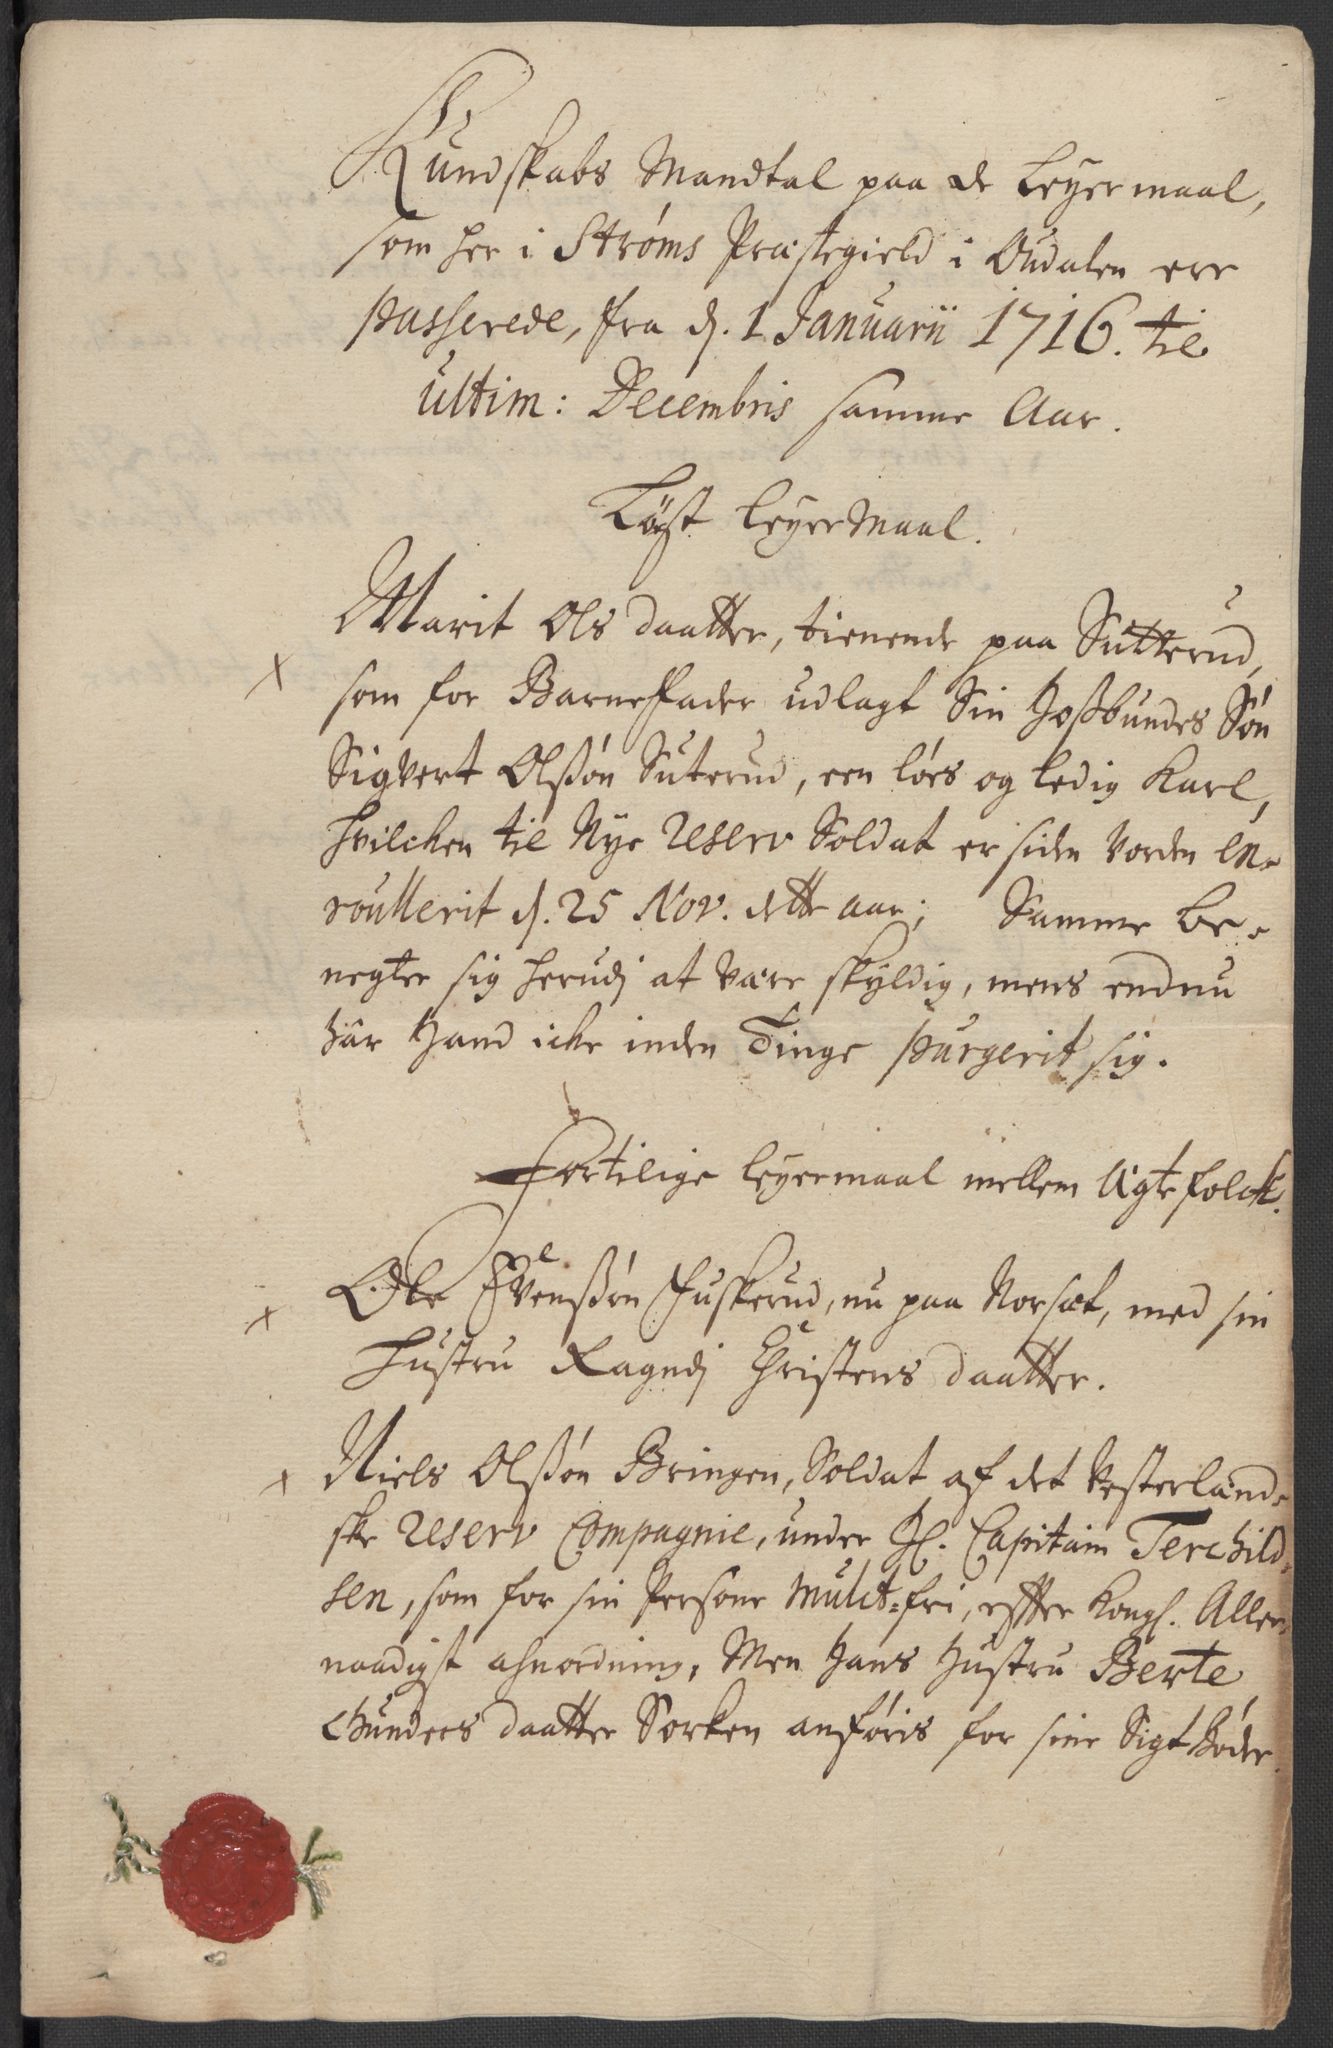 Kundskabs Mandtal paa de Leyermaal,
som her i Strøms Præstegield i Oudalen ere
passerede, fra d. 1 Januarii 1716. til
ultim: Decembris samme Aar.
Løst LeyerMaal.
Marit Ols daatter, tienende paa Sutterud,
x som for BarneFader udlagt Sin Hoßbundes Søn
Sigvert Olßøn Suterud, een løes og ledig Karl,
hvilcken til Nye Reserv Soldat er siden vorden en-
roullerit d. 25 Nov. dette aar; Samme be-
negter sig herudj at være skyldig, mens endnu
har Hand icke inden Tinge purgerit sig.
Fortilige Leyermaal mellem Ægtefolck.
x Ole Evenßøn Fuskerud, nu paa Norsæt, med sin
Hustru Ragndj Christens daatter.
x Niels Olßøn Bringen, Soldat af det Vesterland-
ske Reserv Compagnie, under H. Capitain Terchild-
sen, som for sin Persone Mulct-fri, efter Kongl. Aller-
naadigst anordning, Men Hans Hustru Berte
Gunders daatter Sorken anføris for sine Sigt Bøder.